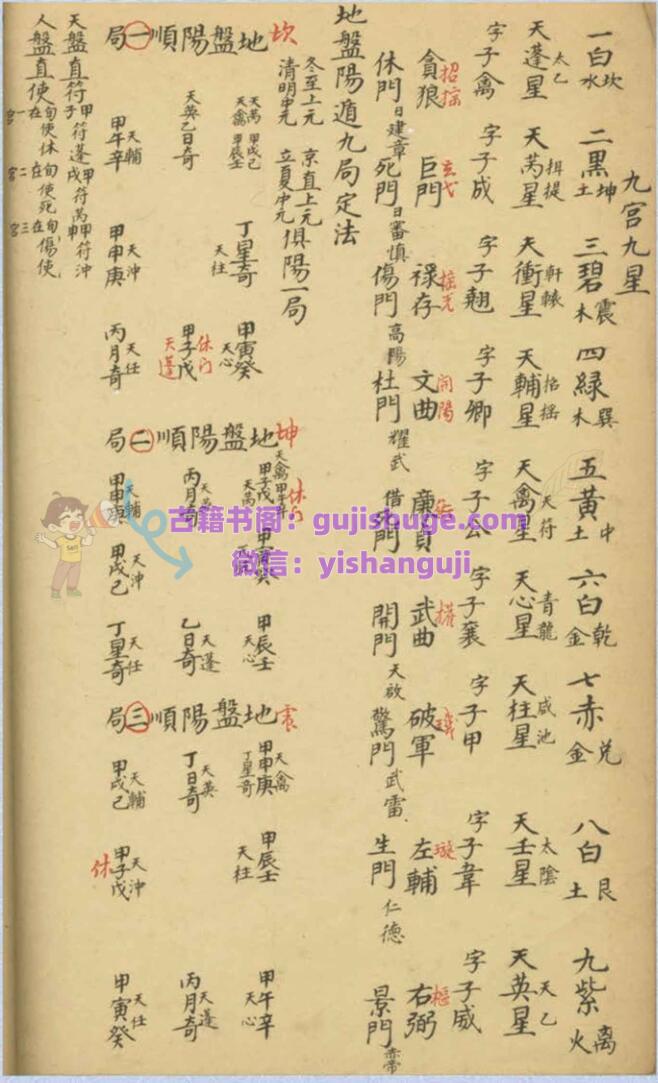 九宮九星
一白水坎 二黑土坤 三碧木震 四綠木巽 五黃土中 六白金乾 七赤金兑 八白土艮 九紫火离
太乙 軒轅 招摇 天符 青龍 咸池 太陰 天乙
天蓬星 天芮星 天衝星 天輔星 天禽星 天心星 天柱星 天壬星 天英星
字子禽 字子成 字子翹 字子卿 字子公 字子襄 字子甲 字子韋 字子威
招摇 玄弋 摇光 開陽 權 璇 樞
貪狼 巨門 祿存 文曲 廉貞 武曲 破軍 左輔 右弼
休門日建章 死門日審慎 傷門高陽 杜門耀武 借門 開門天啟 驚門武雷 生門仁德 景門赤帝
地盤陽遁九局定法
冬至上元 京直上元
清明中元 立夏中元 俱陽一局
坎 地盤陽順一局
天芮 甲戌己
天禽 甲辰壬
丁星奇 天柱
甲寅癸 天心
天英乙日奇
甲子戊 休门 天蓬
甲午辛 天輔
甲申庚 天沖
丙月奇 天任
天盤直符 甲子符蓬 甲戌符芮 甲申符沖
人盤直使 旬在一宮使休 旬在二宮使死 旬在三宮傷使
坤 地盤陽順二局
休门
甲子戊
天芮
丙月奇
甲辰壬 天心
乙日奇 天蓬
天輔
甲戌己 天沖
丁星奇 天任
震 地盤陽順三局
天禽 甲申庚
丁星奇
甲辰壬 天柱
甲午辛 天心
丁日奇 天英
丙月奇 天蓬
甲戌己 天輔
甲子戊 天沖 休
甲寅癸 天任
古籍书阁：gujishuge.com
微信：yishanguji